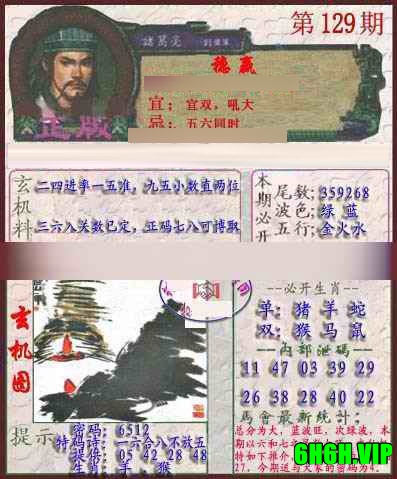 第129期
諸葛亮
稳赢
宜；宜双，吼大
忌；五六同时
正版
玄机料
二四进率一五准，九五小数直两位
三六八关数已定，正码七八可博取
本期必开
尾数:359268
波色:绿 蓝
五行:金火水
玄机图
--必开生肖--
单:猪羊蛇
双:猴马鼠
--内部泄码--
11 47 03 39 29
26 38 28 40 22
馬會最新统计:
总分为大，蓝波旺，次绿波，本
27，今期送与大家的密码为4。
提示
密码: 6512
特码诗:一六合八不放五
提倍: 05 42 28 48
生肖: 羊、猴
6HGH.VIP